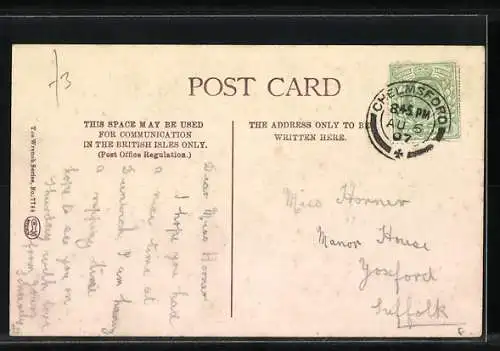 POST CARD
THIS SPACE MAY BE USED
FOR COMMUNICATION
IN THE BRITISH ISLES ONLY.
(Post Office Regulation.)
THE ADDRESS ONLY TO BE
WRITTEN HERE.
CHELMSFORD
8.45 PM
AU 5
07
The Wrench Series, No. 7744
Dear Miss Horner
I hope you had
a nice time at
I am having
a ripping time
hope to see you on
Thursday with love
from yours
Sincerely
Miss Horner
Manor House
Yoxford
Suffolk